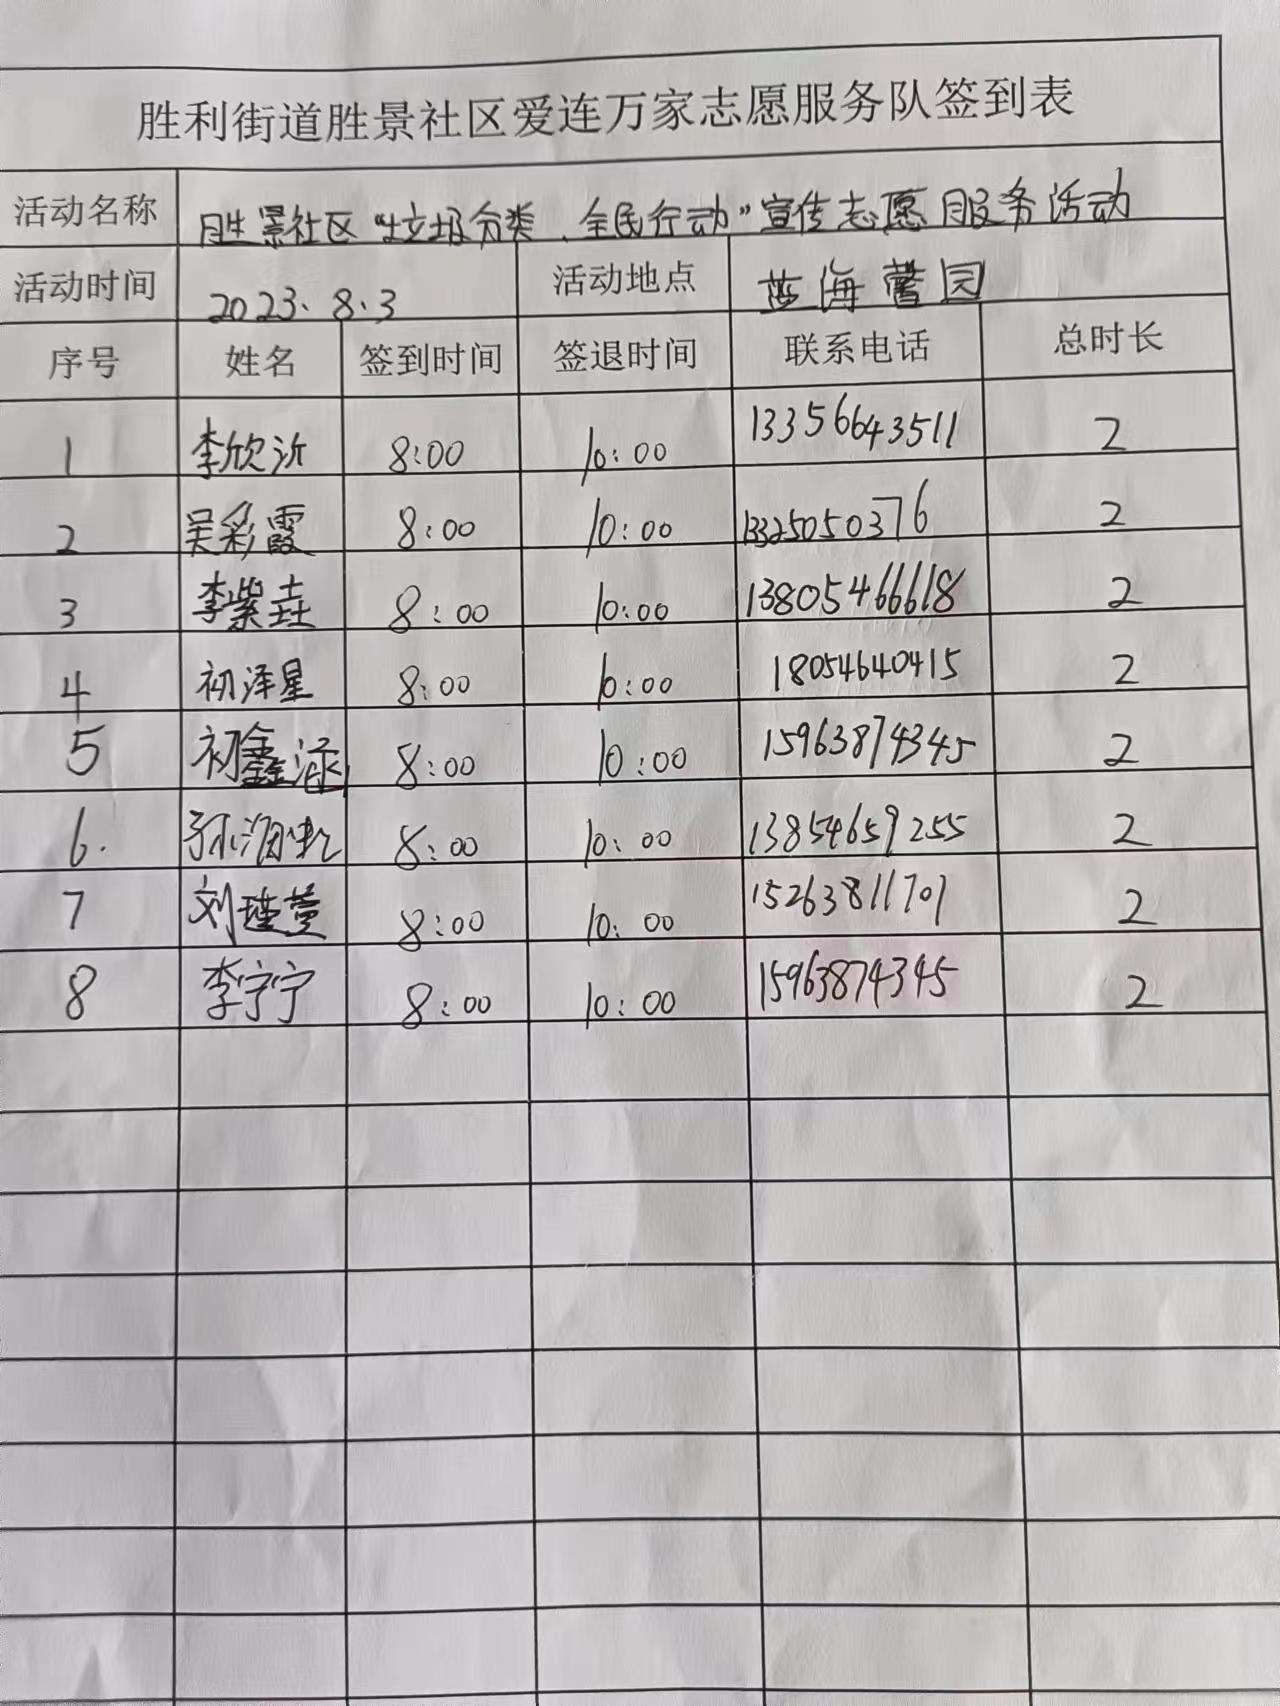 胜利街道胜景社区爱连万家志愿服务队签到表
活动名称 胜景社区“垃圾分类、全民行动”宣传志愿服务活动
活动时间 2023.8.3 活动地点 蓝海馨园
序号 姓名 签到时间 签退时间 联系电话 总时长
1 李欣沂 8:00 10:00 13356643511 2
2 吴彩霞 8:00 10:00 13325050376 2
3 李紫垚 8:00 10:00 13805466618 2
4 初泽星 8:00 10:00 18054640415 2
5 初鑫涵 8:00 10:00 15963874345 2
6. 8:00 10:00 13854659255 2
7 刘瑾萱 8:00 10:00 15263811701 2
8 李宁宁 8:00 10:00 15963874345 2